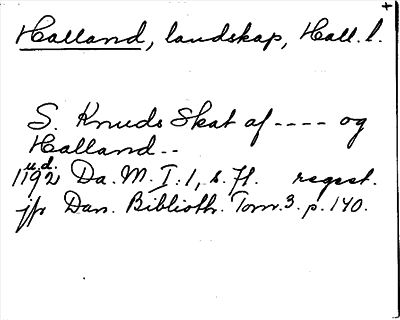 +
Halland, landskap, Hall. l.
S. Knuds Skat af ---- og
Halland--
u.d.
1192 Da. M. I:1, s. 71. regest.
jfr Dan. Biblioth. Tom. 3. p. 140.